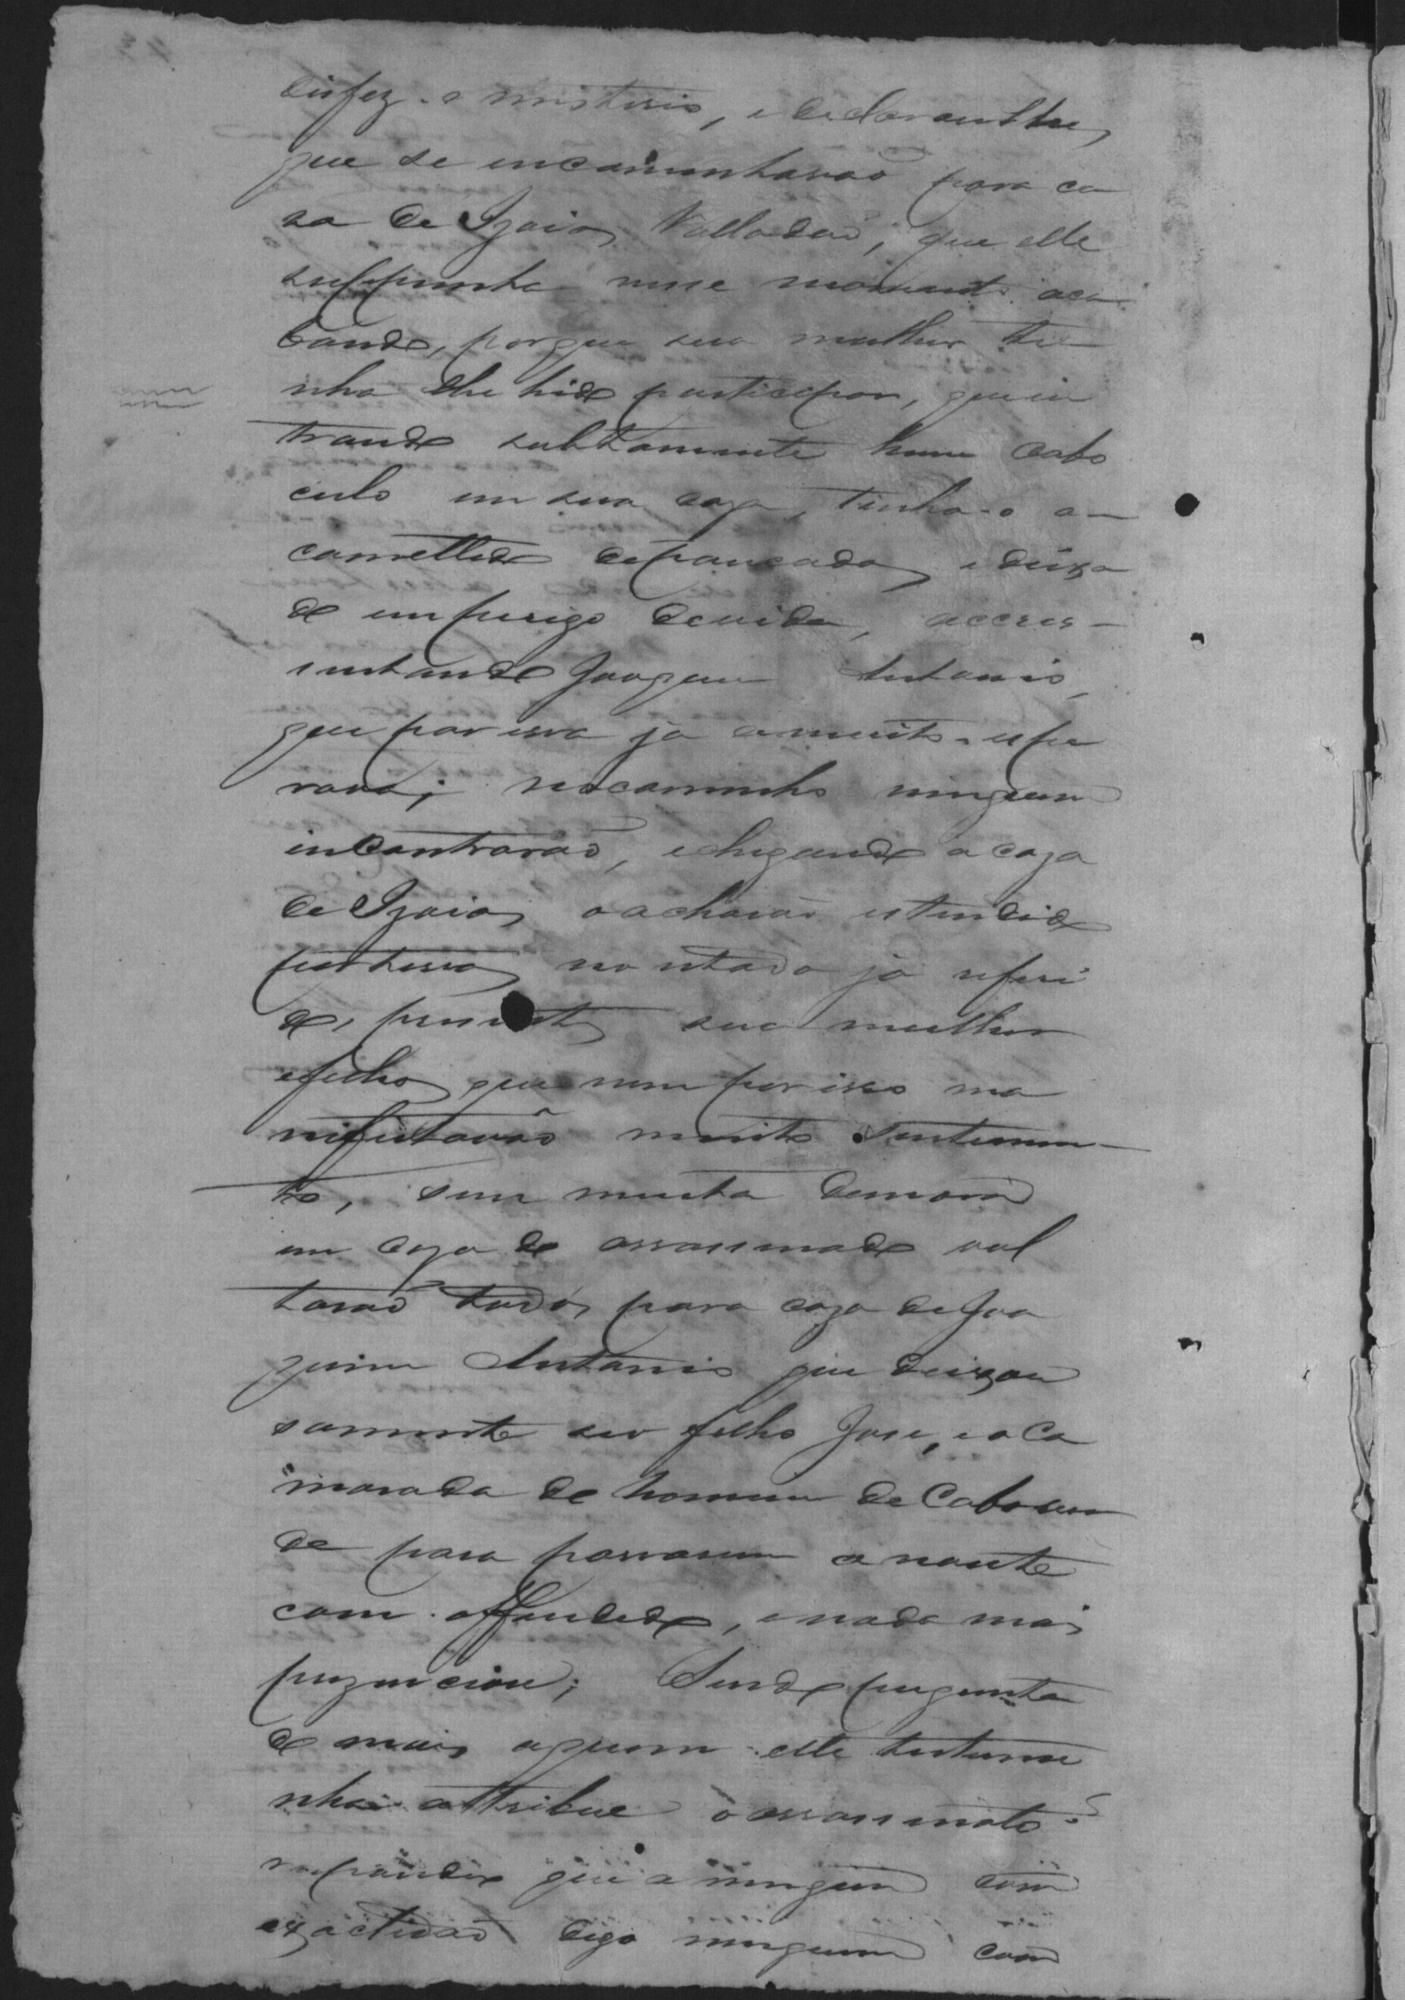 disfez-o misterio, e declaroulhes
que se encaminhavaõ para ca
sa de Izaias Valladaõ, que elle
suppunha nese momento aca
bando, porque sua mulher ti
nha lhe hido participar, que en
trando subitamente hum cabo
culo em sua caza, tinha-o a
comettido de pancadas, e deixa
do em perigo de vida, accres-
sentando Joaquim Antonio,
que por essa já a muito espe
rava; no caminho ninguem
incontraraõ, e chegando a caza
de Izaias o acharaõ estendido
por terra no estado já referi
do, prezente sua mulher
e filhos que nem por isso ma
nifestavaõ muito sentimen-
to, sem muita demora
em caza do assassinado vol
taraõ todos para caza de Joa
quim Antonio que deixou
somente seo filho Jose, e o Ca
marada do homem de Cabo ver
de para passarem a noute
com o offendido, e nada mais
prezenciou; Sendo pergunta
do mais aquem elle testemu
nha attribue o assassinato?
respondeo que a ninguem com
exactidaõ digo ninguem com